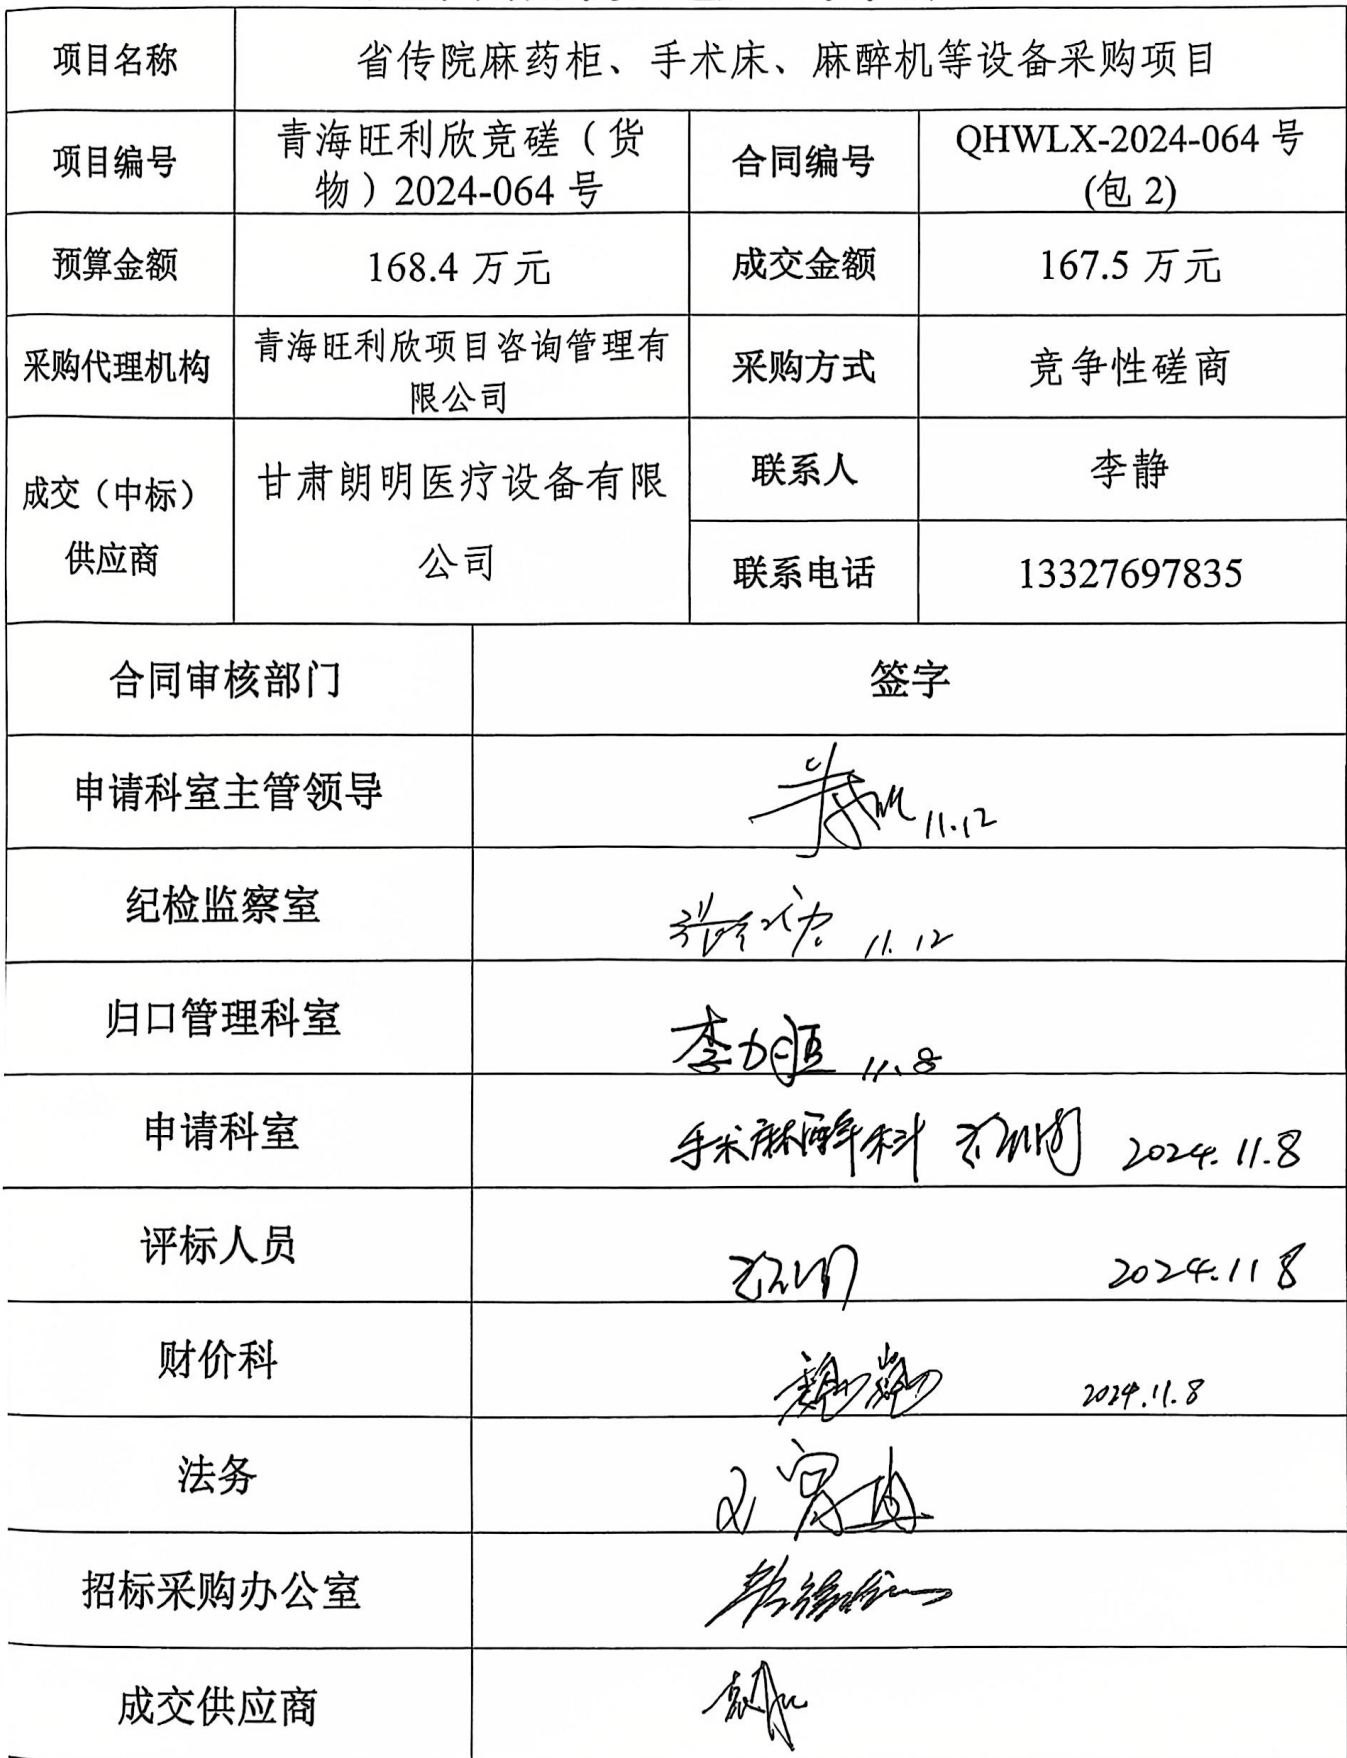 项目名称
省传院麻药柜、手术床、麻醉机等设备采购项目
项目编号
青海旺利欣竞磋（货
物）2024-064 号
合同编号
QHWLX-2024-064 号
(包 2)
预算金额
168.4 万元
成交金额
167.5 万元
采购代理机构
青海旺利欣项目咨询管理有
限公司
采购方式
竞争性磋商
成交（中标）
供应商
甘肃朗明医疗设备有限
公司
联系人
李静
联系电话
13327697835
合同审核部门
签字
申请科室主管领导
11.12
纪检监察室
11.12
归口管理科室
11.8
申请科室
手术麻醉科 2024.11.8
评标人员
2024.11 8
财价科
2024.11.8
法务
招标采购办公室
成交供应商